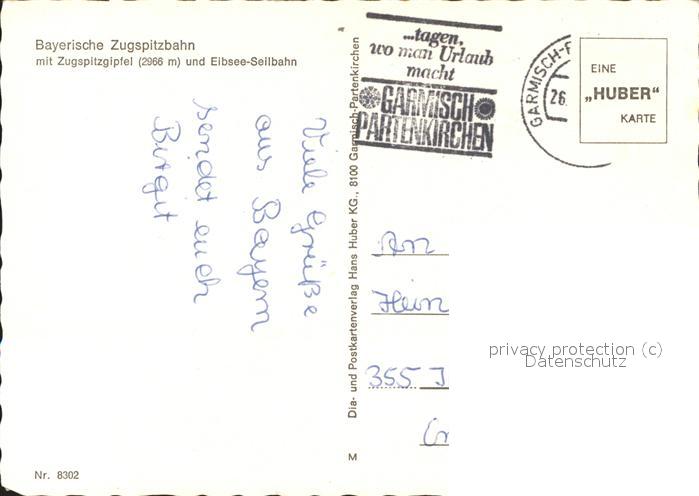 Bayerische Zugspitzbahn
mit Zugspitzgipfel (2966 m) und Eibsee-Seilbahn
Viele Grüße
aus Bayern
sendet euch
Birgit
Nr. 8302
Dia- und Postkartenverlag Hans Huber KG., 8100 Garmisch-Partenkirchen
M
...tagen,
wo man Urlaub
macht
GARMISCH
PARTENKIRCHEN
GARMISCH-P
26.
EINE
„HUBER"
KARTE
An
Hein
355 J
privacy protection (c)
Datenschutz